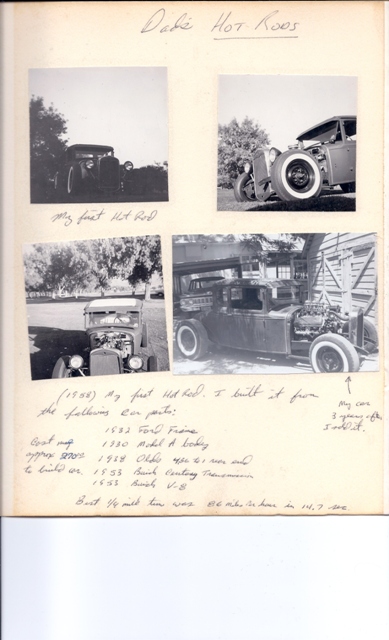 Dad's HOT-RODS
My first Hot Rod
(1958) My first Hot Rod. I built it from
the following car parts:
My car
3 years after
I sold it.
1932 Ford Frame
1930 Model A body
1938 Olds rear end
1953 Buick Century Transmission
1953 Buick V-8
Cost me
approx
to build car.
Best 1/4 mile time was 86 miles in 14.7 sec